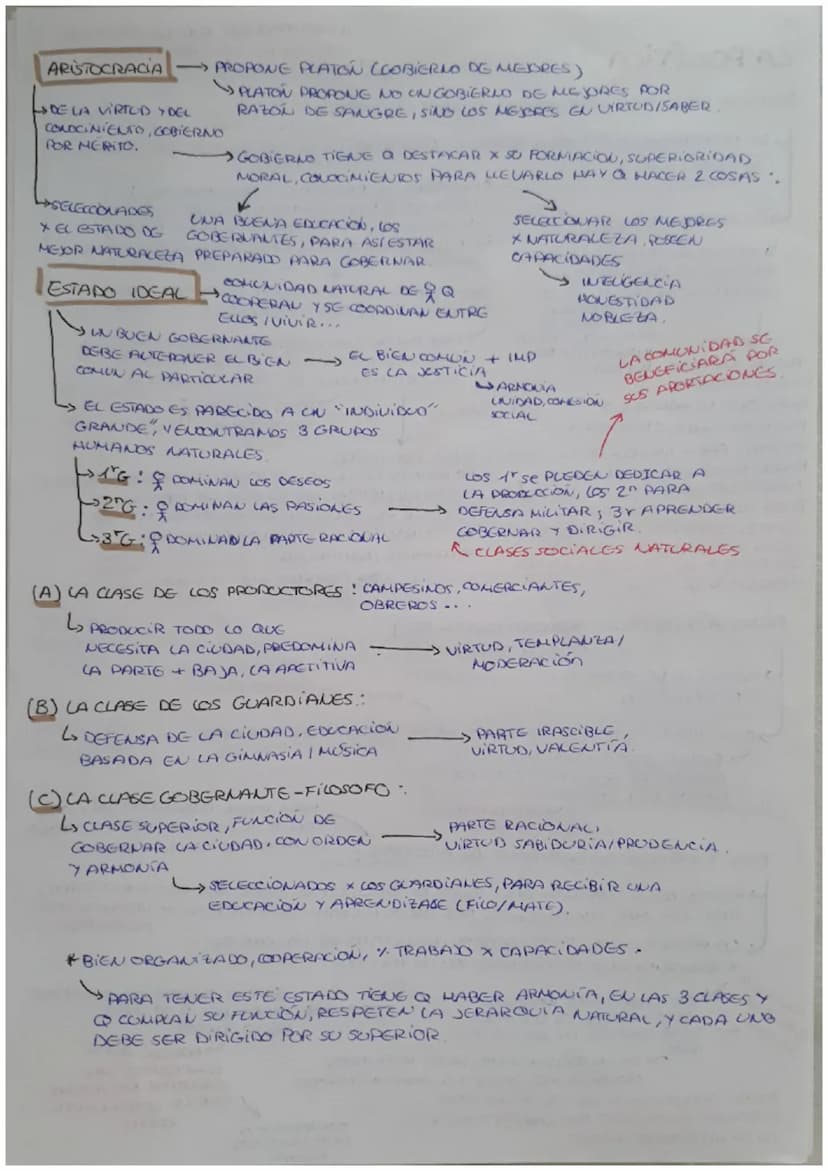 ARISTOCRACIA → PROPONE PLATÓN (GOBIERNO DE MEJORES)
↳ PLATÓN PROPONE NO UN GOBIERNO DE MEJORES POR
RAZÓN DE SANGRE, SINO LOS MEJORES EN VIRTUD/SABER.
→ DE LA VIRTUD Y DEL
CONOCIMIENTO, GOBIERNO
POR MÉRITO.
→ GOBIERNO TIENE Q DESTACAR X SU FORMACIÓN, SUPERIORIDAD
MORAL, CONOCIMIENTOS PARA LLEVARLO HAY Q HACER 2 COSAS:
→ SELECCIONADES
X EL ESTADO DE
MEJOR NATURALEZA
UNA BUENA EDUCACIÓN, LOS
GOBERNANTES, PARA ASÍ ESTAR
PREPARADO PARA GOBERNAR.
SELECCIONAR LOS MEJORES
X NATURALEZA, POSEEN
CAPACIDADES
→ INTELIGENCIA
HONESTIDAD
NOBLEZA.
ESTADO IDEAL → COMUNIDAD NATURAL DE Q
COOPERAN Y SE COORDINAN ENTRE
ELLOS / VIVIR...
→ UN BUEN GOBERNANTE
DEBE ANTEPONER EL BIEN
COMÚN AL PARTICULAR
→ EL BIEN COMÚN + IMP
ES LA JUSTICIA
↳ ARMONÍA
UNIDAD, COHESIÓN
SOCIAL
LA COMUNIDAD SE
BENEFICIARÁ POR
SUS APORTACIONES.
→ EL ESTADO ES PARECIDO A UN "INDIVIDUO
GRANDE", Y ENCONTRAMOS 3 GRUPOS
HUMANOS NATURALES.
→ 1ʳG: DOMINAN LOS DESEOS
→ 2ⁿG: DOMINAN LAS PASIONES
→ 3ʳG: DOMINAN LA PARTE RACIONAL
→ LOS 1ʳ SE PUEDEN DEDICAR A
LA PRODUCCIÓN, LOS 2ⁿ PARA
DEFENSA MILITAR; 3r APRENDER
GOBERNAR Y DIRIGIR.
CLASES SOCIALES NATURALES
(A) LA CLASE DE LOS PRODUCTORES: CAMPESINOS, COMERCIANTES,
OBREROS...
↳ PRODUCIR TODO LO QUE
NECESITA LA CIUDAD, PREDOMINA
LA PARTE + BAJA, LA APETITIVA
→ VIRTUD, TEMPLANZA/
MODERACIÓN
(B) LA CLASE DE LOS GUARDIANES:
↳ DEFENSA DE LA CIUDAD. EDUCACIÓN
BASADA EN LA GIMNASIA / MÚSICA
→ PARTE IRASCIBLE,
VIRTUD, VALENTÍA.
(C) LA CLASE GOBERNANTE-FILOSOFO:
↳ CLASE SUPERIOR, FUNCIÓN DE
GOBERNAR LA CIUDAD. CON ORDEN
Y ARMONÍA
→ PARTE RACIONAL,
VIRTUD SABIDURÍA/PRUDENCIA.
↳ SELECCIONADOS X LOS GUARDIANES, PARA RECIBIR UNA
EDUCACIÓN Y APRENDIZAGE (FILO/MATE).
* BIEN ORGANIZADO, COOPERACIÓN, % TRABAJO X CAPACIDADES.
↳ PARA TENER ESTE ESTADO TIENE Q HABER ARMONÍA, EN LAS 3 CLASES Y
Q COMPLAN SU FUNCIÓN, RESPETEN LA JERARQUÍA NATURAL, Y CADA UNO
DEBE SER DIRIGIDO POR SU SUPERIOR.